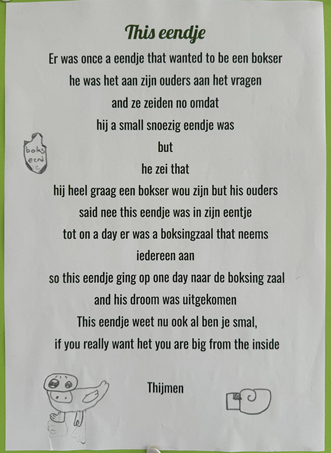 This eendje
Er was once a eendje that wanted to be een bokser
he was het aan zijn ouders aan het vragen
and ze zeiden no omdat
hij a small snoezig eendje was
but
he zei that
hij heel graag een bokser wou zijn but his ouders
said nee this eendje was in zijn eentje
tot on a day er was a boksingzaal that neems
iedereen aan
so this eendje ging op one day naar de boksing zaal
and his droom was uitgekomen
This eendje weet nu ook al ben je smal,
if you really want het you are big from the inside
Thijmen
boks
eend